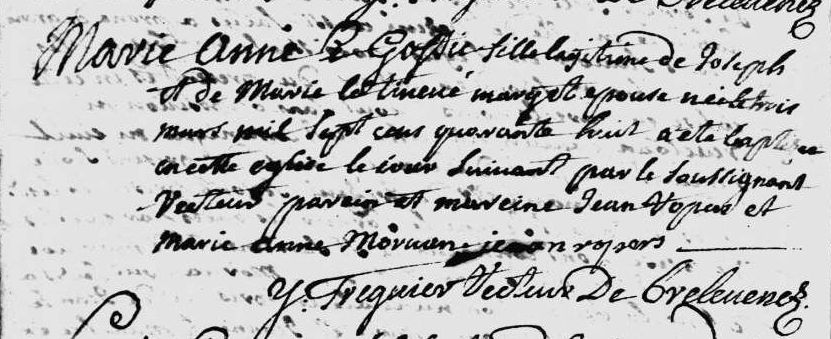 De Brelevenez
Marie Anne Le Goffic fille legitime de Joseph
et de Marie margot epouse née le trois
mars mil sept cens quarante huit a ete baptisee
en cette eglise le jour suivant par le soussignant
Recteur parein et mareine Jean et
Marie anne Morvan jean ropers
Y. Treguier Recteur De Brelevenez.